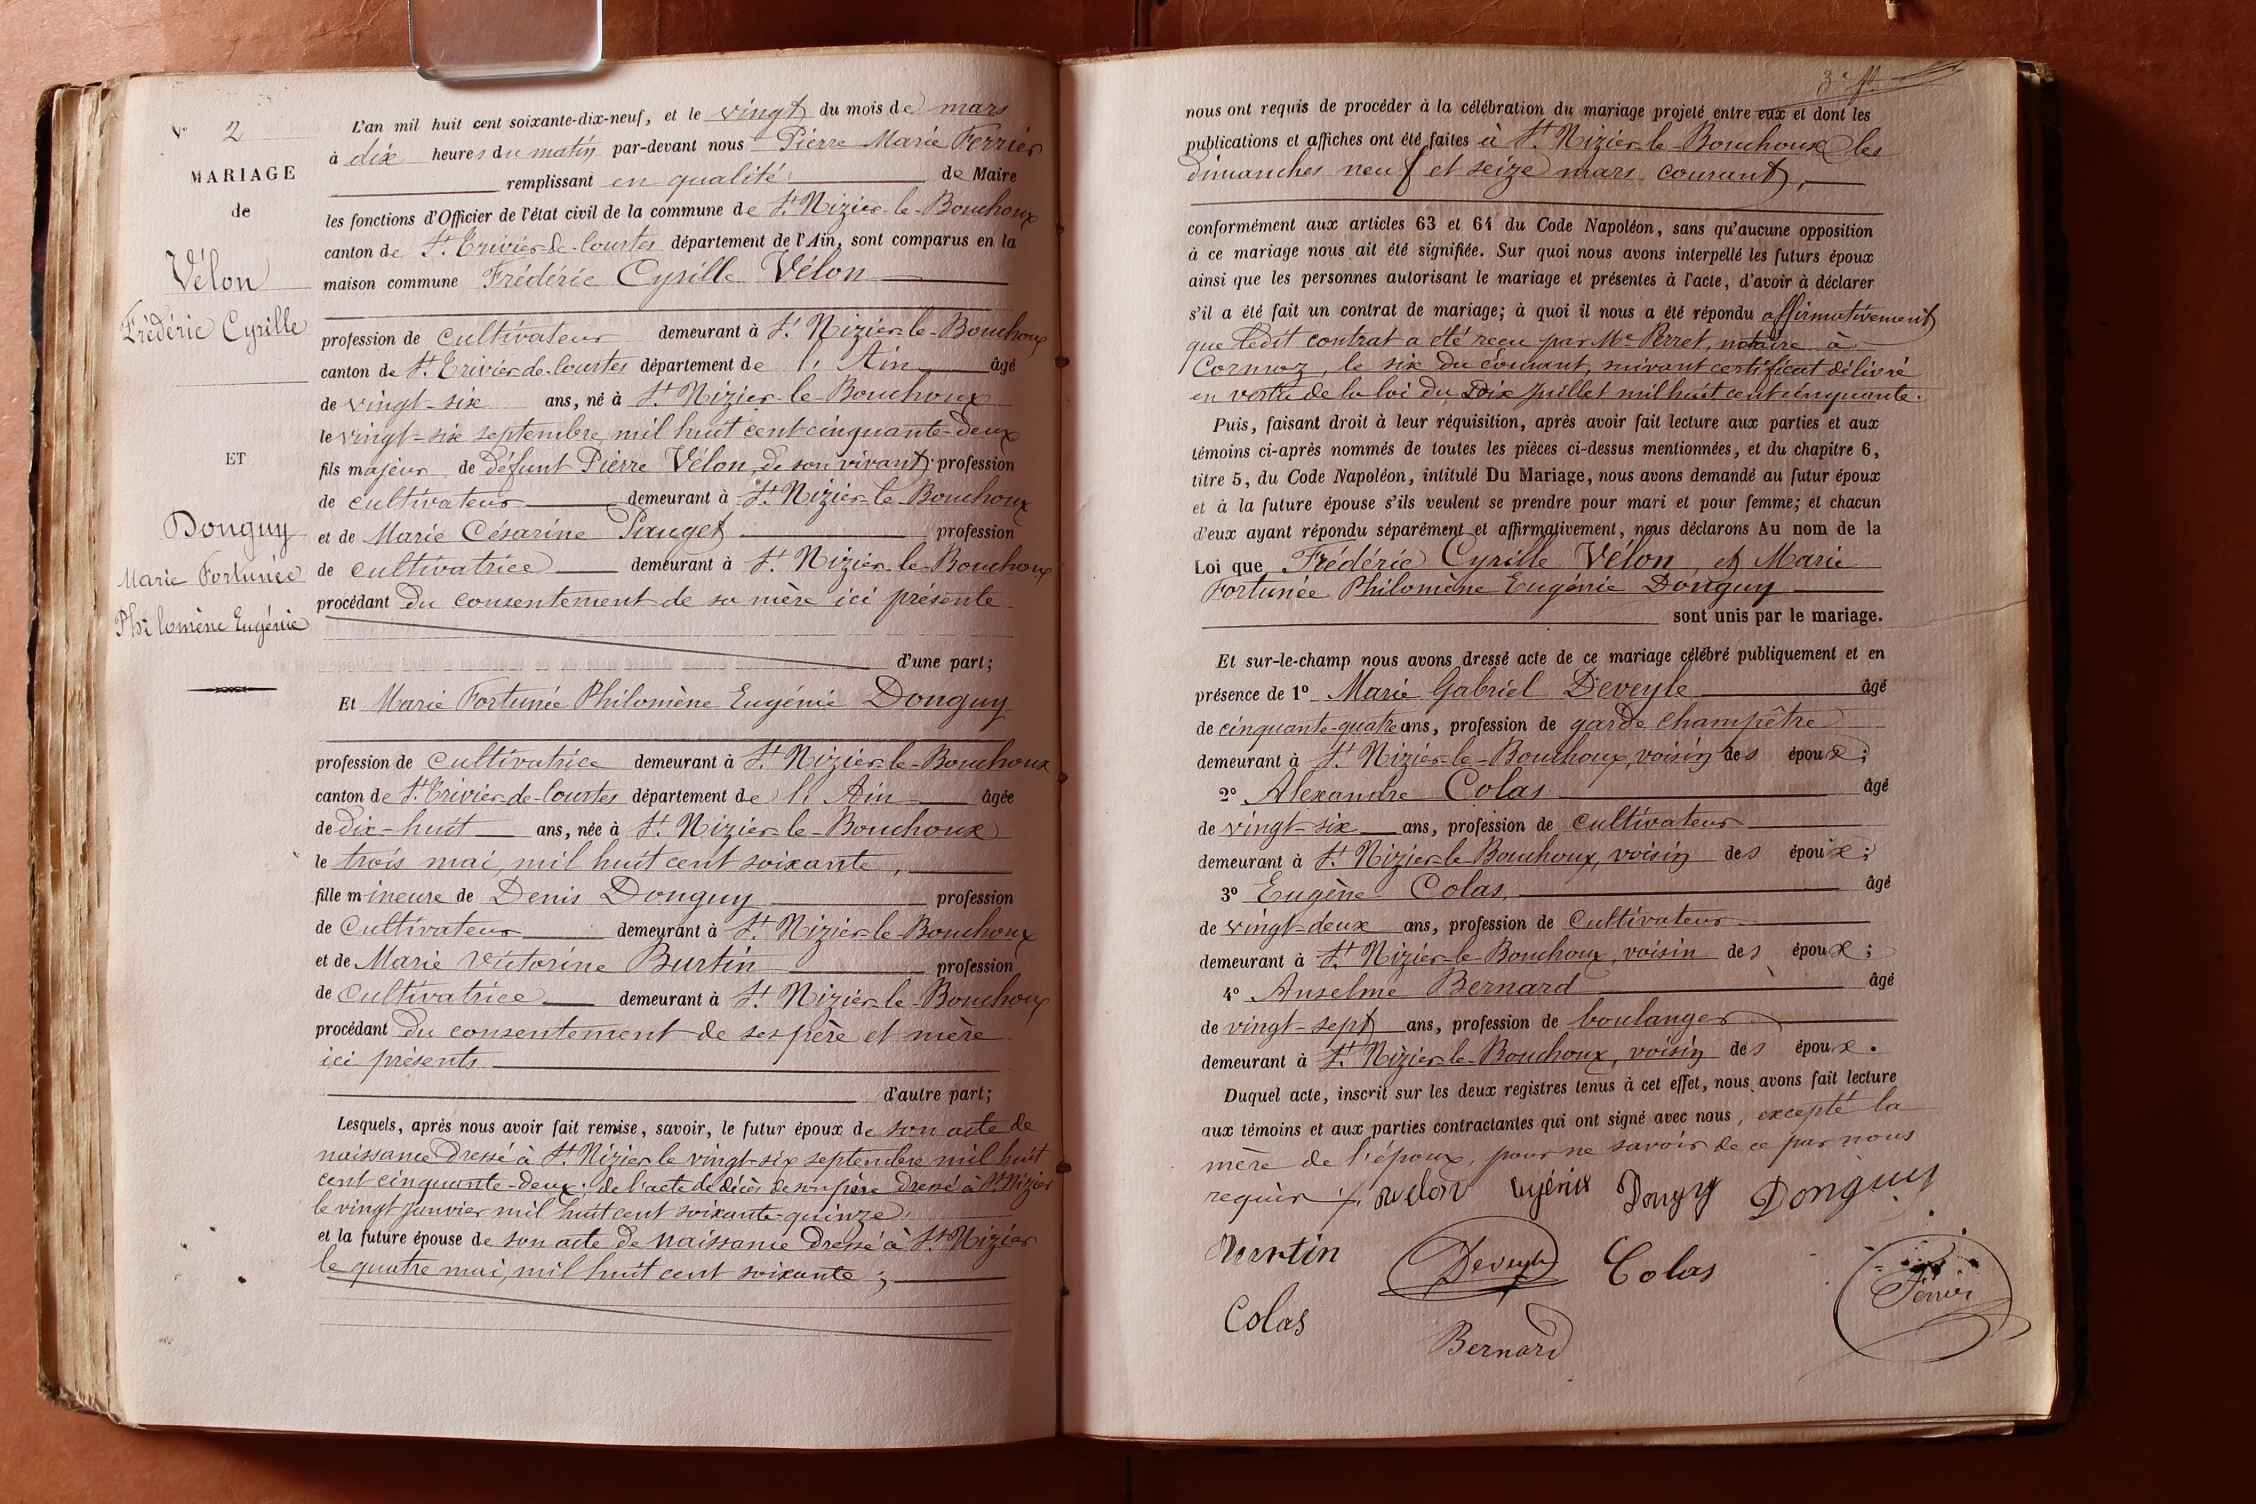 N° 2
MARIAGE
de
Vélon
Frédéric Cyrille
ET
Donguy
Marie Fortunée
Philomène Eugénie
L'an mil huit cent soixante-dix-neuf, et le vingt du mois de mars
à dix heures du matin par-devant nous Pierre Marie Ferrier
remplissant en qualité de Maire
les fonctions d'Officier de l'état civil de la commune de St Nizier-le-Bouchoux
canton de St Trivier-de-Courtes département de l'Ain, sont comparus en la
maison commune Frédéric Cyrille Vélon
profession de cultivateur demeurant à St Nizier-le-Bouchoux
canton de St Trivier-de-Courtes département de l'Ain âgé
de vingt-six ans, né à St Nizier-le-Bouchoux
le vingt-six septembre mil huit cent cinquante-deux
fils majeur de défunt Pierre Vélon, de son vivant, profession
de cultivateur demeurant à St Nizier-le-Bouchoux
et de Marie Césarine Pauget profession
de cultivatrice demeurant à St Nizier-le-Bouchoux
procédant du consentement de sa mère ici présente
d'une part;
Et Marie Fortunée Philomène Eugénie Donguy
profession de cultivatrice demeurant à St Nizier-le-Bouchoux
canton de St Trivier-de-Courtes département de l'Ain âgée
de dix-huit ans, née à St Nizier-le-Bouchoux
le trois mai, mil huit cent soixante,
fille mineure de Denis Donguy profession
de cultivateur demeurant à St Nizier-le-Bouchoux
et de Marie Victorine Burtin profession
de cultivatrice demeurant à St Nizier-le-Bouchoux
procédant du consentement de ses père et mère
ici présents
d'autre part;
Lesquels, après nous avoir fait remise, savoir, le futur époux de son acte de
naissance dressé à St Nizier le vingt-six septembre mil huit
cent cinquante-deux; de l'acte de décès de son père dressé à St Nizier
le vingt janvier mil huit cent soixante-quinze,
et la future épouse de son acte de naissance dressé à St Nizier
le quatre mai, mil huit cent soixante;
nous ont requis de procéder à la célébration du mariage projeté entre eux et dont les
publications et affiches ont été faites à St Nizier-le-Bouchoux les
dimanches neuf et seize mars courant,
conformément aux articles 63 et 64 du Code Napoléon, sans qu'aucune opposition
à ce mariage nous ait été signifiée. Sur quoi nous avons interpellé les futurs époux
ainsi que les personnes autorisant le mariage et présentes à l'acte, d'avoir à déclarer
s'il a été fait un contrat de mariage; à quoi il nous a été répondu affirmativement
que ledit contrat a été reçu par Me Perret, notaire à
Cormoz, le six du courant, suivant certificat délivré
en vertu de la loi du dix juillet mil huit cent cinquante.
Puis, faisant droit à leur réquisition, après avoir fait lecture aux parties et aux
témoins ci-après nommés de toutes les pièces ci-dessus mentionnées, et du chapitre 6,
titre 5, du Code Napoléon, intitulé Du Mariage, nous avons demandé au futur époux
et à la future épouse s'ils veulent se prendre pour mari et pour femme; et chacun
d'eux ayant répondu séparément et affirmativement, nous déclarons Au nom de la
Loi que Frédéric Cyrille Vélon, et Marie
Fortunée Philomène Eugénie Donguy
sont unis par le mariage.
Et sur-le-champ nous avons dressé acte de ce mariage célébré publiquement et en
présence de 1° Marie Gabriel Deveyle âgé
de cinquante-quatre ans, profession de garde champêtre
demeurant à St Nizier-le-Bouchoux, voisin des époux;
2° Alexandre Colas âgé
de vingt-six ans, profession de cultivateur
demeurant à St Nizier-le-Bouchoux, voisin des époux;
3° Eugène Colas, âgé
de vingt-deux ans, profession de cultivateur
demeurant à St Nizier-le-Bouchoux, voisin des époux;
4° Anselme Bernard âgé
de vingt-sept ans, profession de boulanger
demeurant à St Nizier-le-Bouchoux, voisin des époux.
Duquel acte, inscrit sur les deux registres tenus à cet effet, nous avons fait lecture
aux témoins et aux parties contractantes qui ont signé avec nous, excepté la
mère de l'époux, pour ne savoir de ce par nous
requise
Donguy Donguy
Deveyle Colas
Colas
Bernard